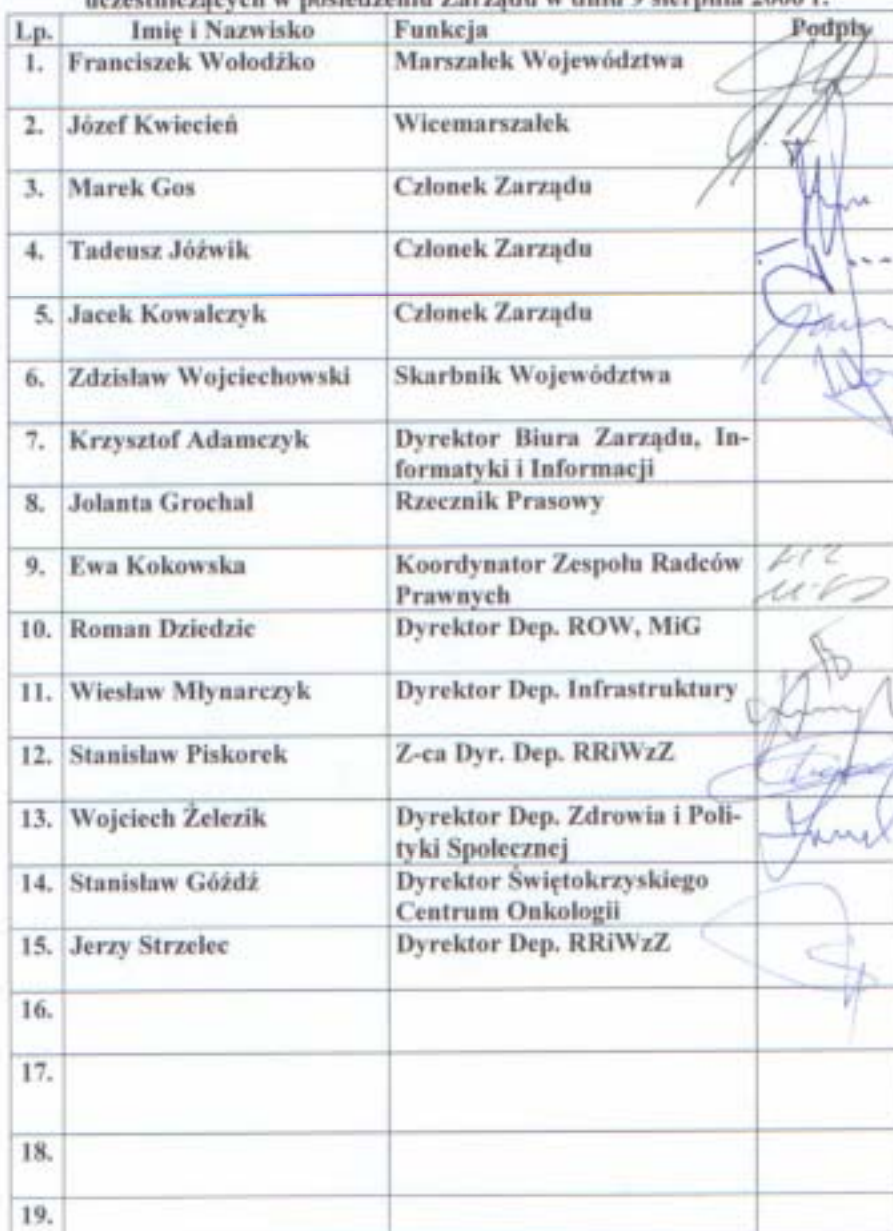 uczestniczących w posiedzeniu Zarządu w dniu 9 sierpnia 2006 r.
Lp. Imię i Nazwisko Funkcja Podpis
1. Franciszek Wołodźko Marszałek Województwa
2. Józef Kwiecień Wicemarszałek
3. Marek Gos Członek Zarządu
4. Tadeusz Jóźwik Członek Zarządu
5. Jacek Kowalczyk Członek Zarządu
6. Zdzisław Wojciechowski Skarbnik Województwa
7. Krzysztof Adamczyk Dyrektor Biura Zarządu, In-
formatyki i Informacji
8. Jolanta Grochal Rzecznik Prasowy
9. Ewa Kokowska Koordynator Zespołu Radców
Prawnych
10. Roman Dziedzic Dyrektor Dep. ROW, MiG
11. Wiesław Młynarczyk Dyrektor Dep. Infrastruktury
12. Stanisław Piskorek Z-ca Dyr. Dep. RRiWzZ
13. Wojciech Żelezik Dyrektor Dep. Zdrowia i Poli-
tyki Społecznej
14. Stanisław Góźdź Dyrektor Świętokrzyskiego
Centrum Onkologii
15. Jerzy Strzelec Dyrektor Dep. RRiWzZ
16.
17.
18.
19.